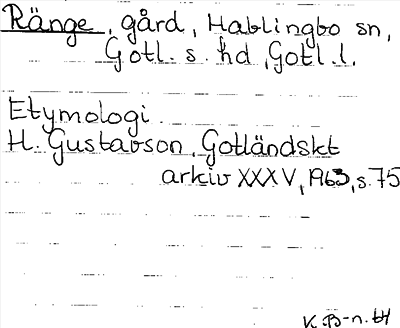 Ränge, gård, Hablingbo sn,
Gotl. s. hd, Gotl. l.
Etymologi.
H. Gustavson, Gotländskt
arkiv XXXV, 1963, s. 75